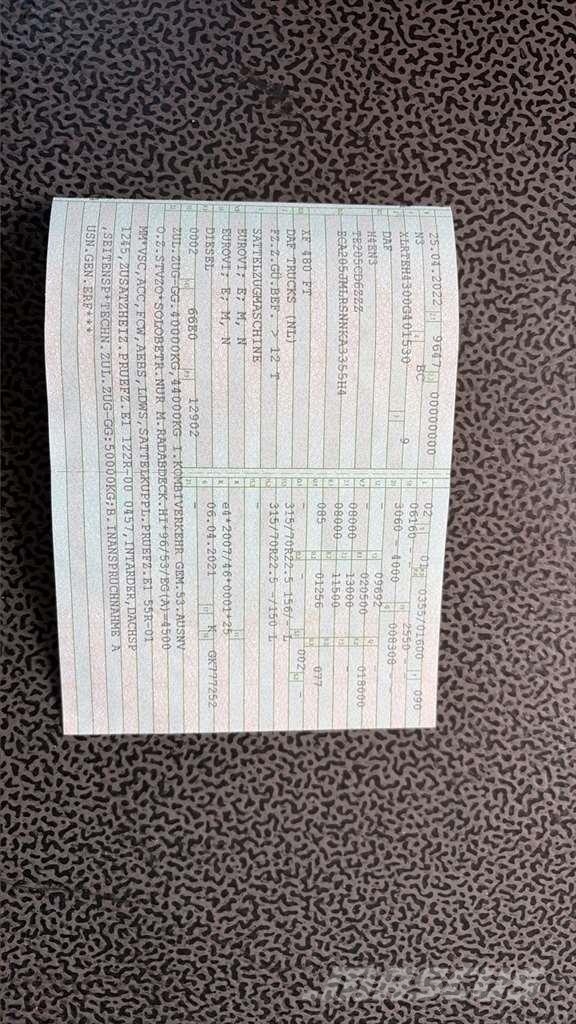 25.04.2022 9647 00000000
N3 BC
XLRTEH4300G401530 9
DAF
H4EN3
TE205CD6ZZZ
ECA205JMLRSNNKA3355H4
XF 480 FT
DAF TRUCKS (NL)
FZ.Z.GÜ.BEF. > 12 T
SATTELZUGMASCHINE
EUROVI; E; M, N
EUROVI; E; M, N
DIESEL
0002 66E0 12902
02 01 0355/01600 090
06160 - 2550 -
3060 - 4000 008308 -
- 02692 -
- 020500 018000
08000 13000 -
08000 11500 -
085 01256 077
- - 002 -
315/70R22.5 156/- L
315/70R22.5 -/150 L
-
e4*2007/46*0001*25
06.04.2021 K GK777252
-
ZUL.ZUG-GG.40000KG,44000KG I.KOMBIVERKEHR GEM.53.AUSNV
O.Z.STVZO*SOLOBETR.NUR M.RADABDECK.HI*96/53/EG(A)=4500
MM*VSC,ACC,FCW,AEBS,LDWS,SATTELKUPPL.PRUEFZ.E1 55R-01
1245,ZUSATZHEIZ.PRUEFZ.E1 122R-00 0457,INTARDER,DACHSP
.,SEITENSP*TECHN.ZUL.ZUG-GG:50000KG;B.INANSPRUCHNAHME A
USN.GEN.ERF***